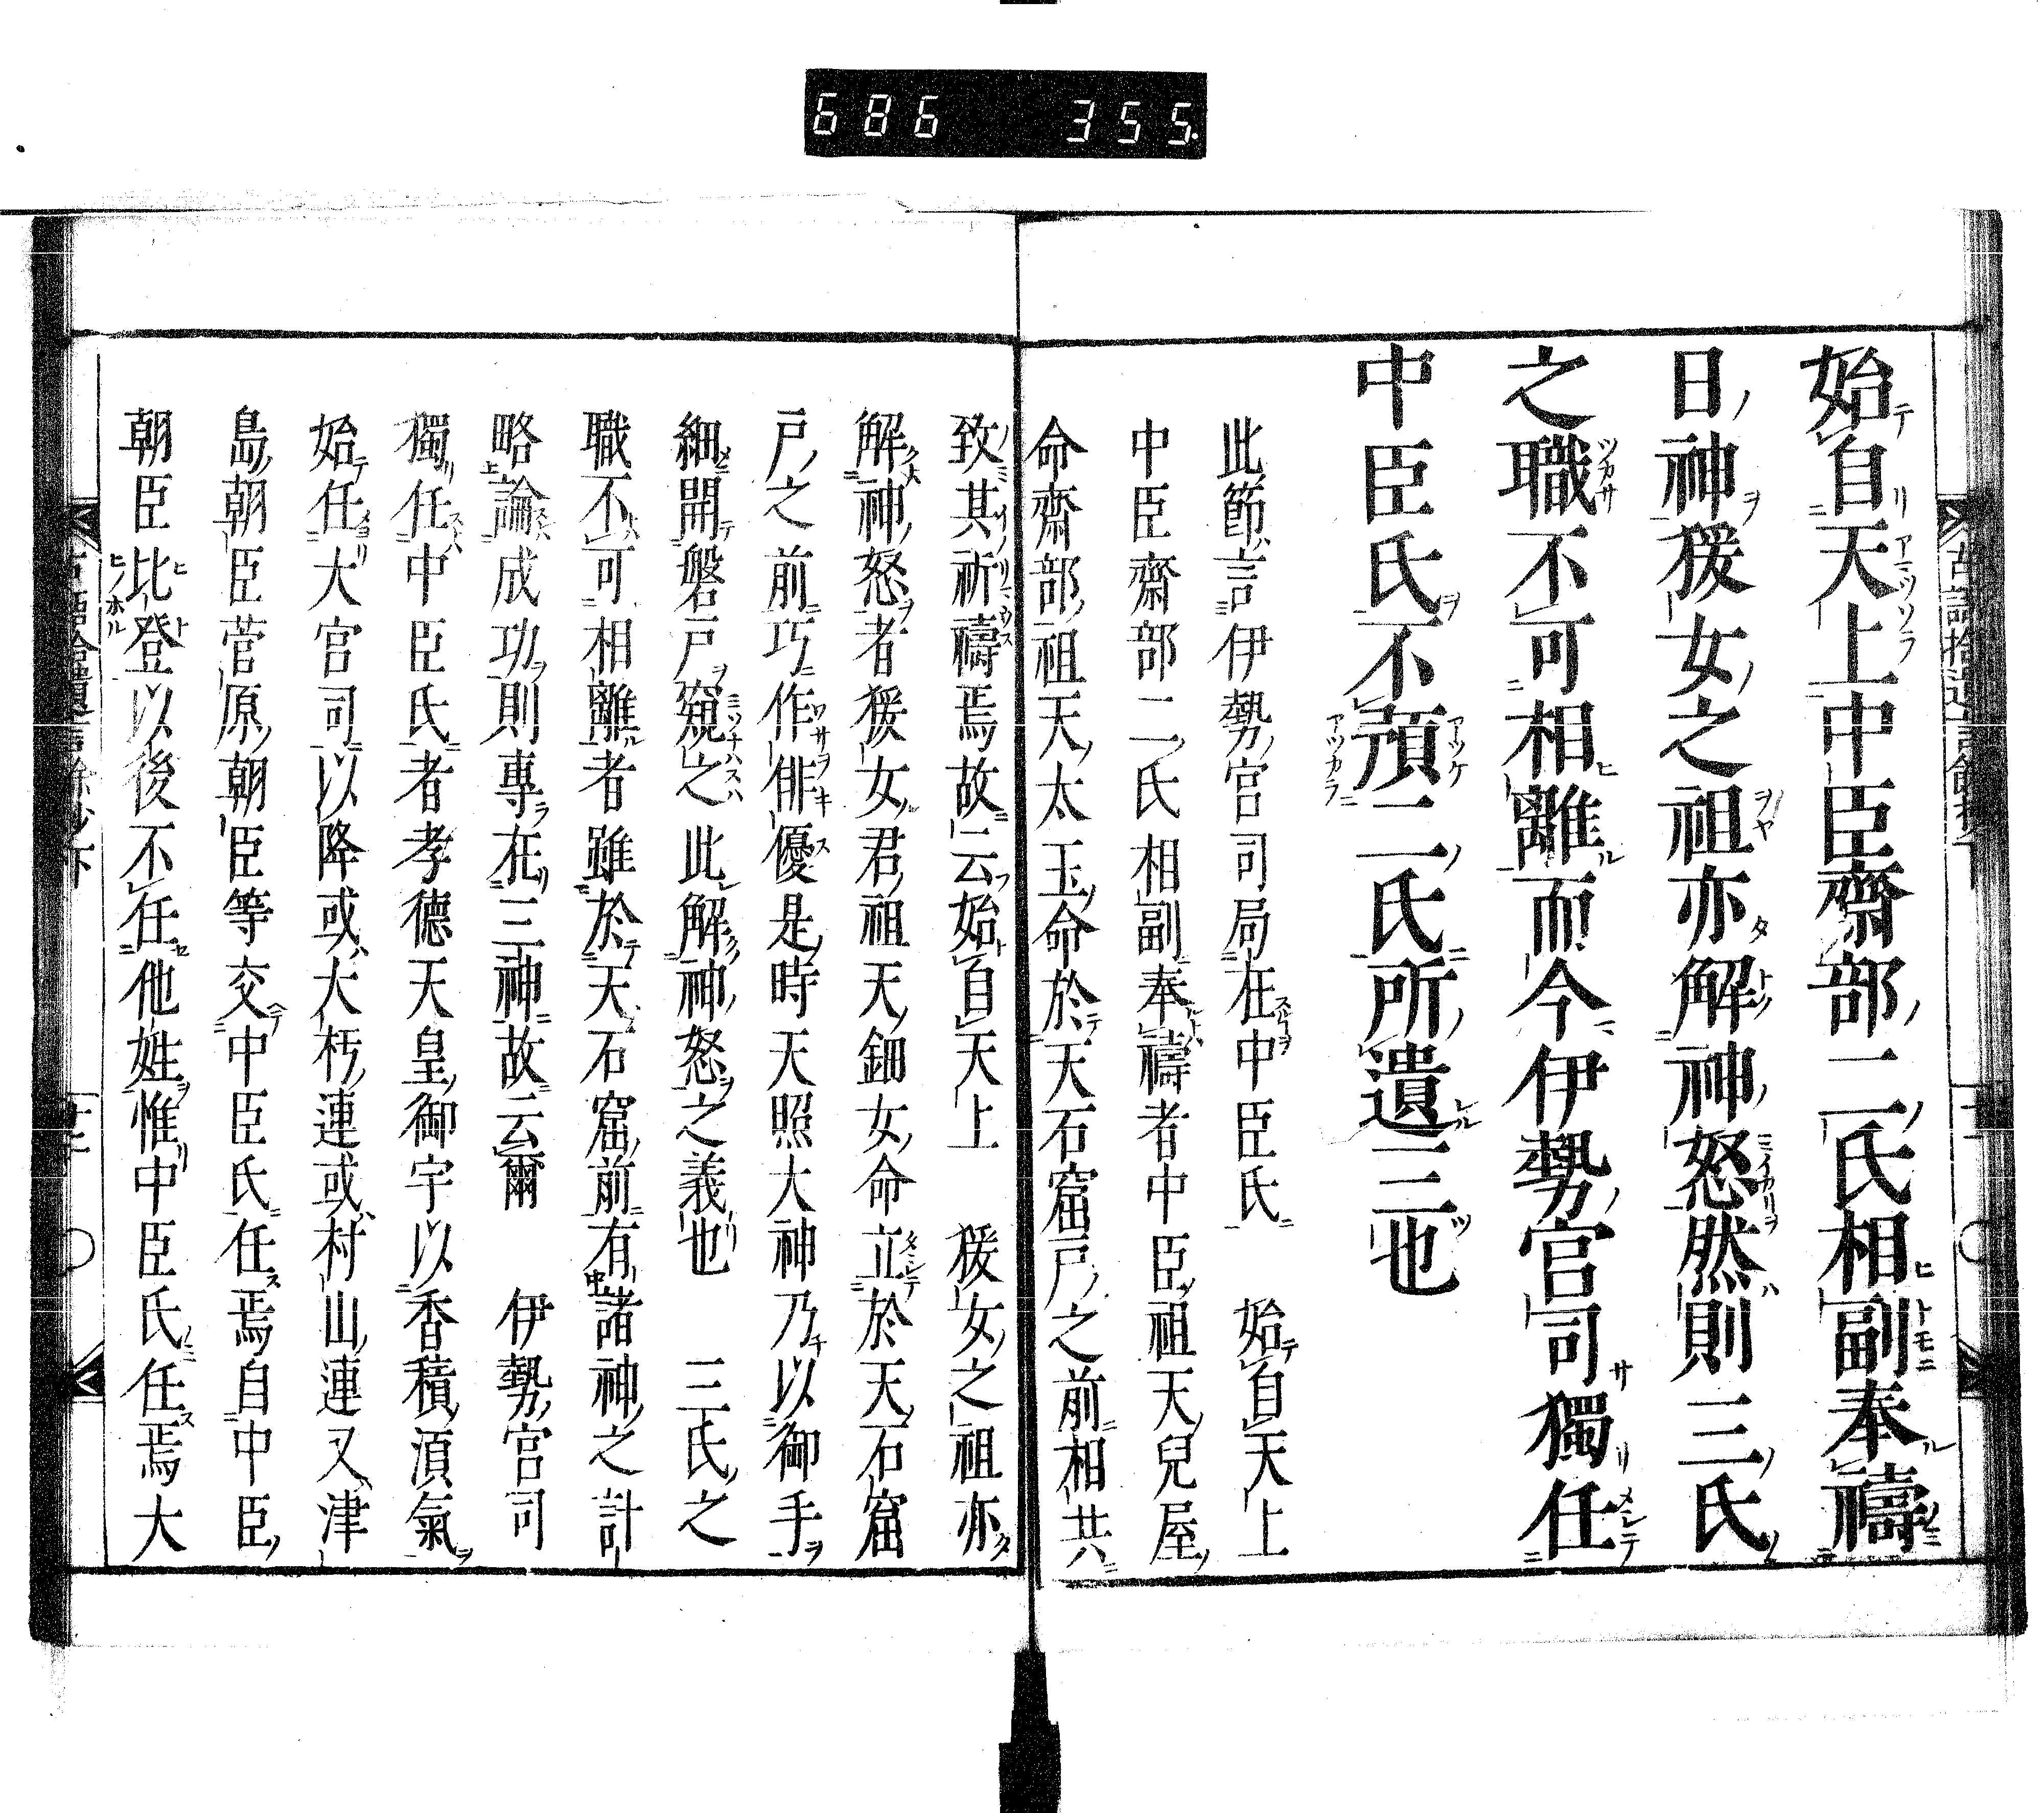 686 355.
始自天上中臣齋部二氏相副奉禱
日神猨女之祖亦解神怒然則三氏
之職不可相離而今伊勢官司獨任
中臣氏不預二氏所遺三也
此節言伊勢官司局在中臣氏 始自天上
中臣齋部二氏相副奉禱者中臣祖天兒屋
命齋部祖天太玉命於天石窟戸之前相共
致其祈禱焉故云始自天上 猨女之祖亦
解神怒者猨女君祖天鈿女命立於天石窟
戸之前巧作俳優是時天照大神乃以御手
細開磐戸窺之此解神怒之義也 三氏之
職不可相離者雖於天石窟前有諸神之計
略論成功則專在三神故云爾 伊勢宮司
獨任中臣氏者孝德天皇御宇以香積湏氣
始任大宮司以降或大朽連或村山連又津
島朝臣菅原朝臣等交中臣氏任焉自中臣
朝臣比登以後不任他姓惟中臣氏任焉大